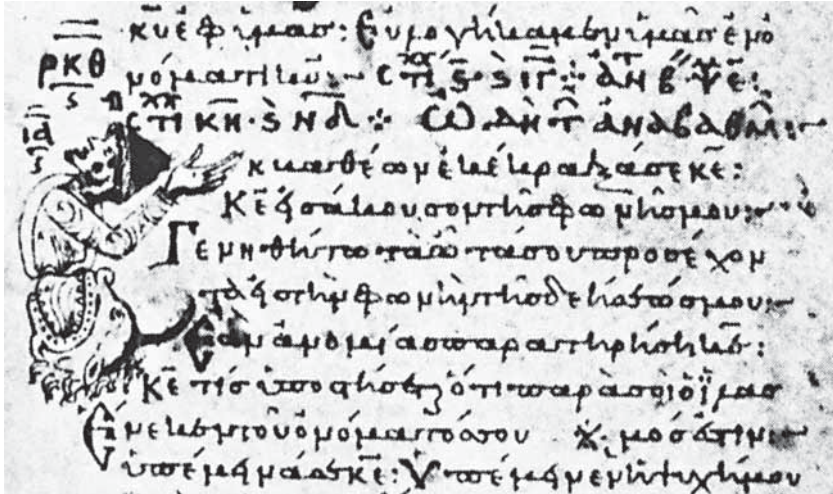 κ͞υ ἐφ ἡμᾶσ: Εὐλογήκαμεν ὑμᾶσ ἐν ὀ
ρκθ
νόματι κ͞υ:
ια
ὠδὴ τ ἀναβαθμ:
κ βαθέων ἐκέκραξά σε κ͞ε:
Κ͞ε εἰσάκουσον τῆσ φωνῆσ μου:
Γενηθήτω τὰ ὦτά σου προσέχον
τὰ εἰσ τὴν φωνὴν τῆσ δεήσεώσ μου:
Ἐὰν ἀνομίασ παρατηρήσηι κ͞ε:
Κ͞ε τίσ ὑποστήσεται ὅτι παρὰ σοὶ ὁ ἱλασ
Ἕνεκεν τοῦ ὀνόματόσ σου μόσ ἐστιν:
ὑπέμεινά σε κ͞ε: Ὑπέμεινεν ἡ ψυχή μου